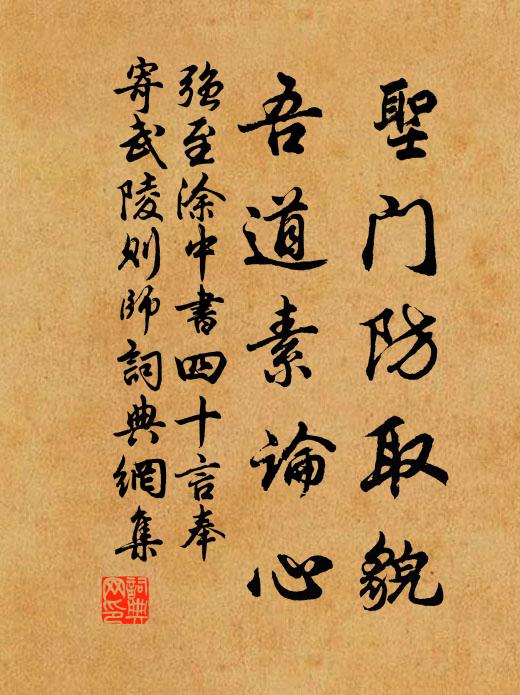 聖门防取貌
吾道素論心
強至涂中書四十言奉
寄武陵則師詞典網集
詞典網印